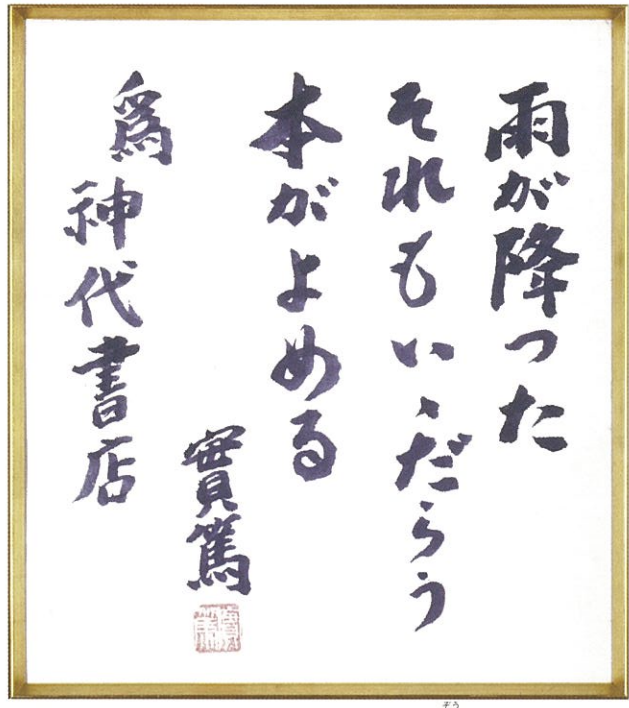 雨が降つた
それもいゝだらう
本がよめる
實篤
爲
神代書店
ぞう